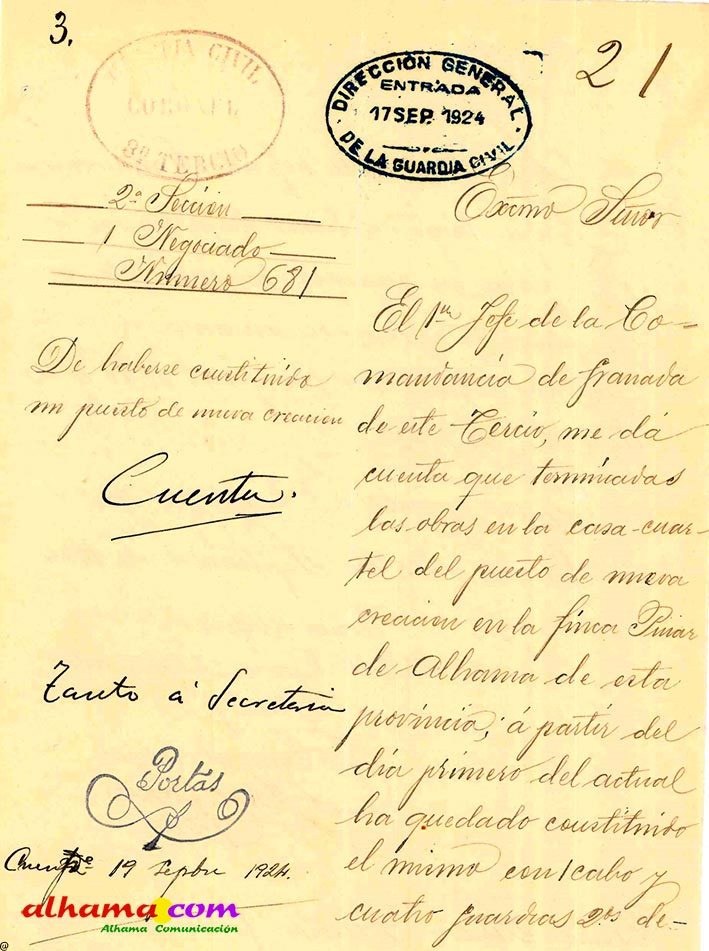 3.
GUARDIA CIVIL
CORONEL
8º TERCIO
DIRECCIÓN GENERAL
ENTRADA
17 SEP. 1924
DE LA GUARDIA CIVIL
21
2ª Sección
1 Negociado
Numero 681
De haberse constituido
un puesto de nueva creacion
Cuenta.
Tanto á Secretaria
Portas
19 Sepbre 1924.
Excmo Señor
El 1er Jefe de la Co-
mandancia de Granada
de este Tercio, me dá
cuenta que terminadas
las obras en la casa-cuar-
tel del puesto de nueva
creacion en la finca Pinar
de Alhama de esta
provincia; á partir del
día primero del actual
ha quedado constituido
el mismo con 1 cabo y
cuatro guardias 2.os de-
alhama.com
Alhama Comunicación
@